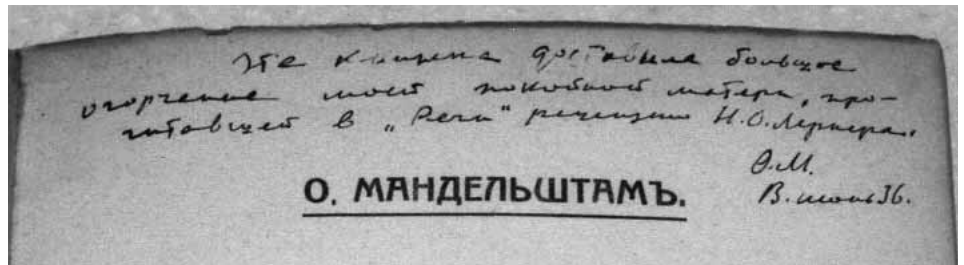 Эта книжка доставила большое
огорчение моей покойной матери, про-
читавшей в „Речи" рецензию Н.О.Лернера.
О.М.
В. июнь 36.
О. МАНДЕЛЬШТАМЪ.